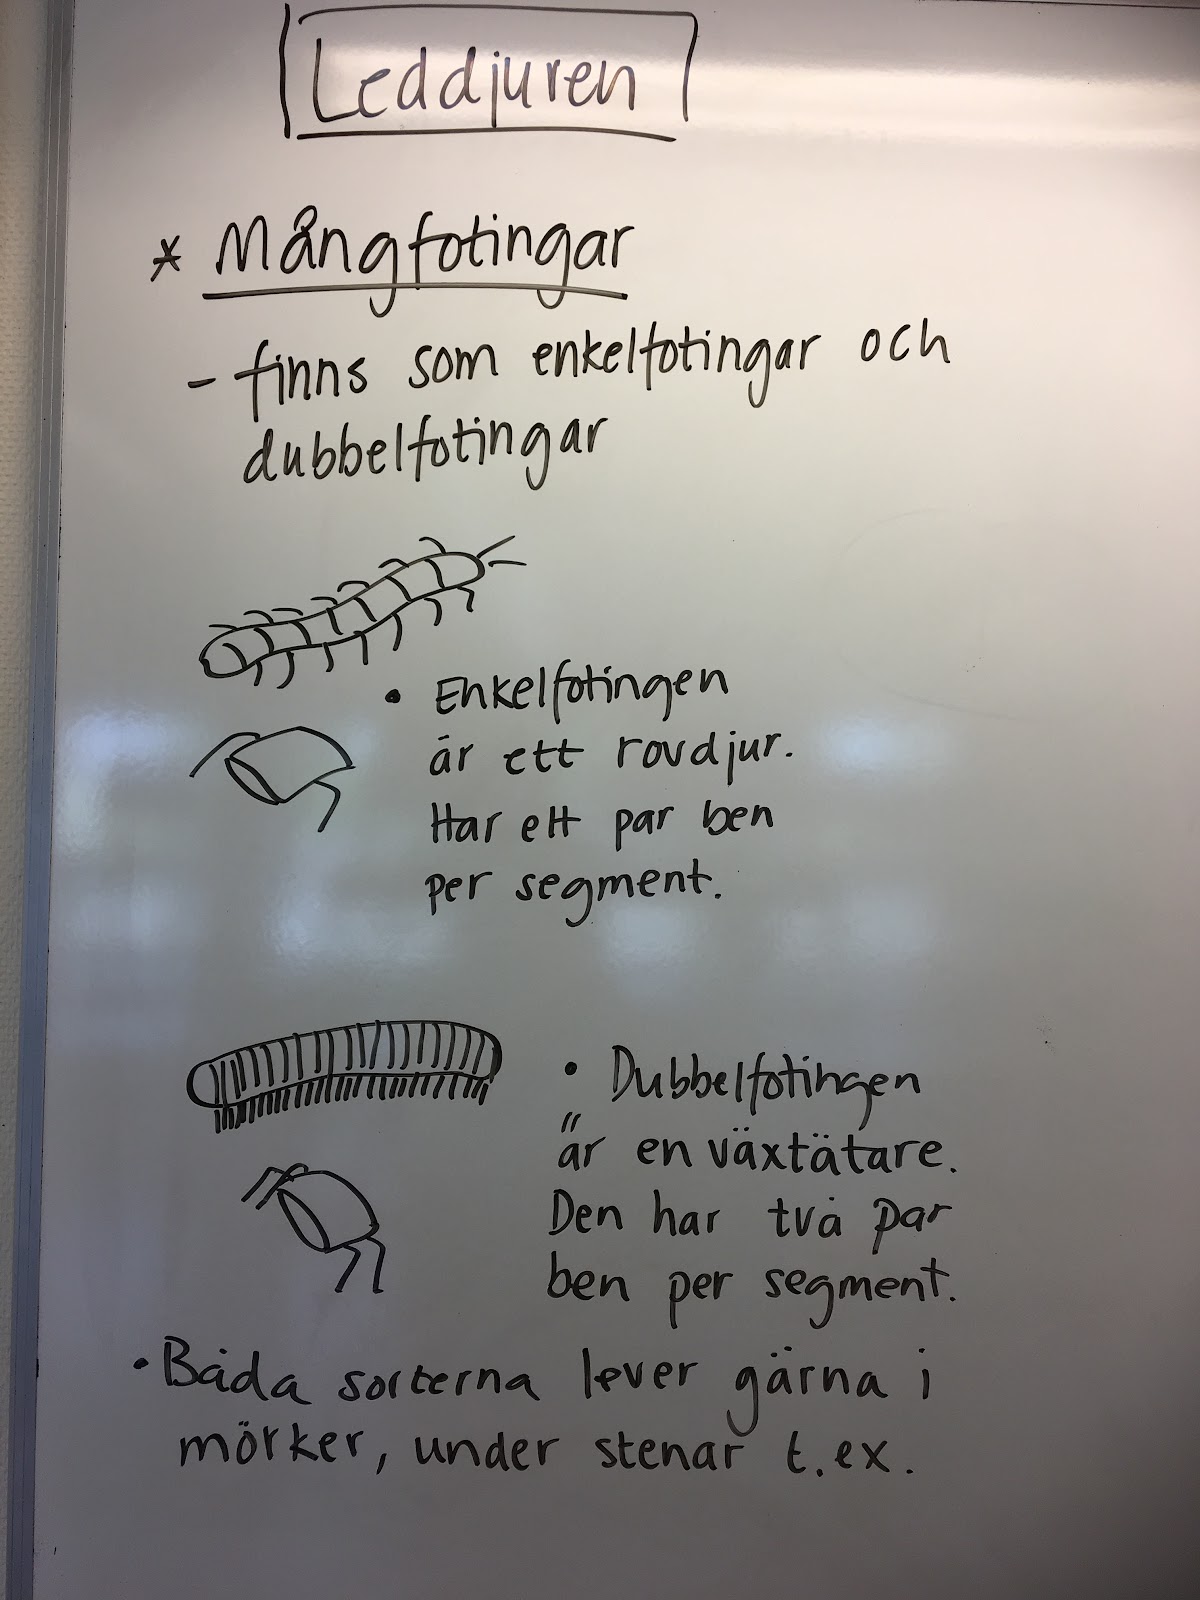 Leddjuren
* Mångfotingar
- finns som enkelfotingar och
dubbelfotingar
• Enkelfotingen
är ett rovdjur.
Har ett par ben
per segment.
• Dubbelfotingen
är en växtätare.
Den har två par
ben per segment.
• Båda sorterna lever gärna i
mörker, under stenar t.ex.